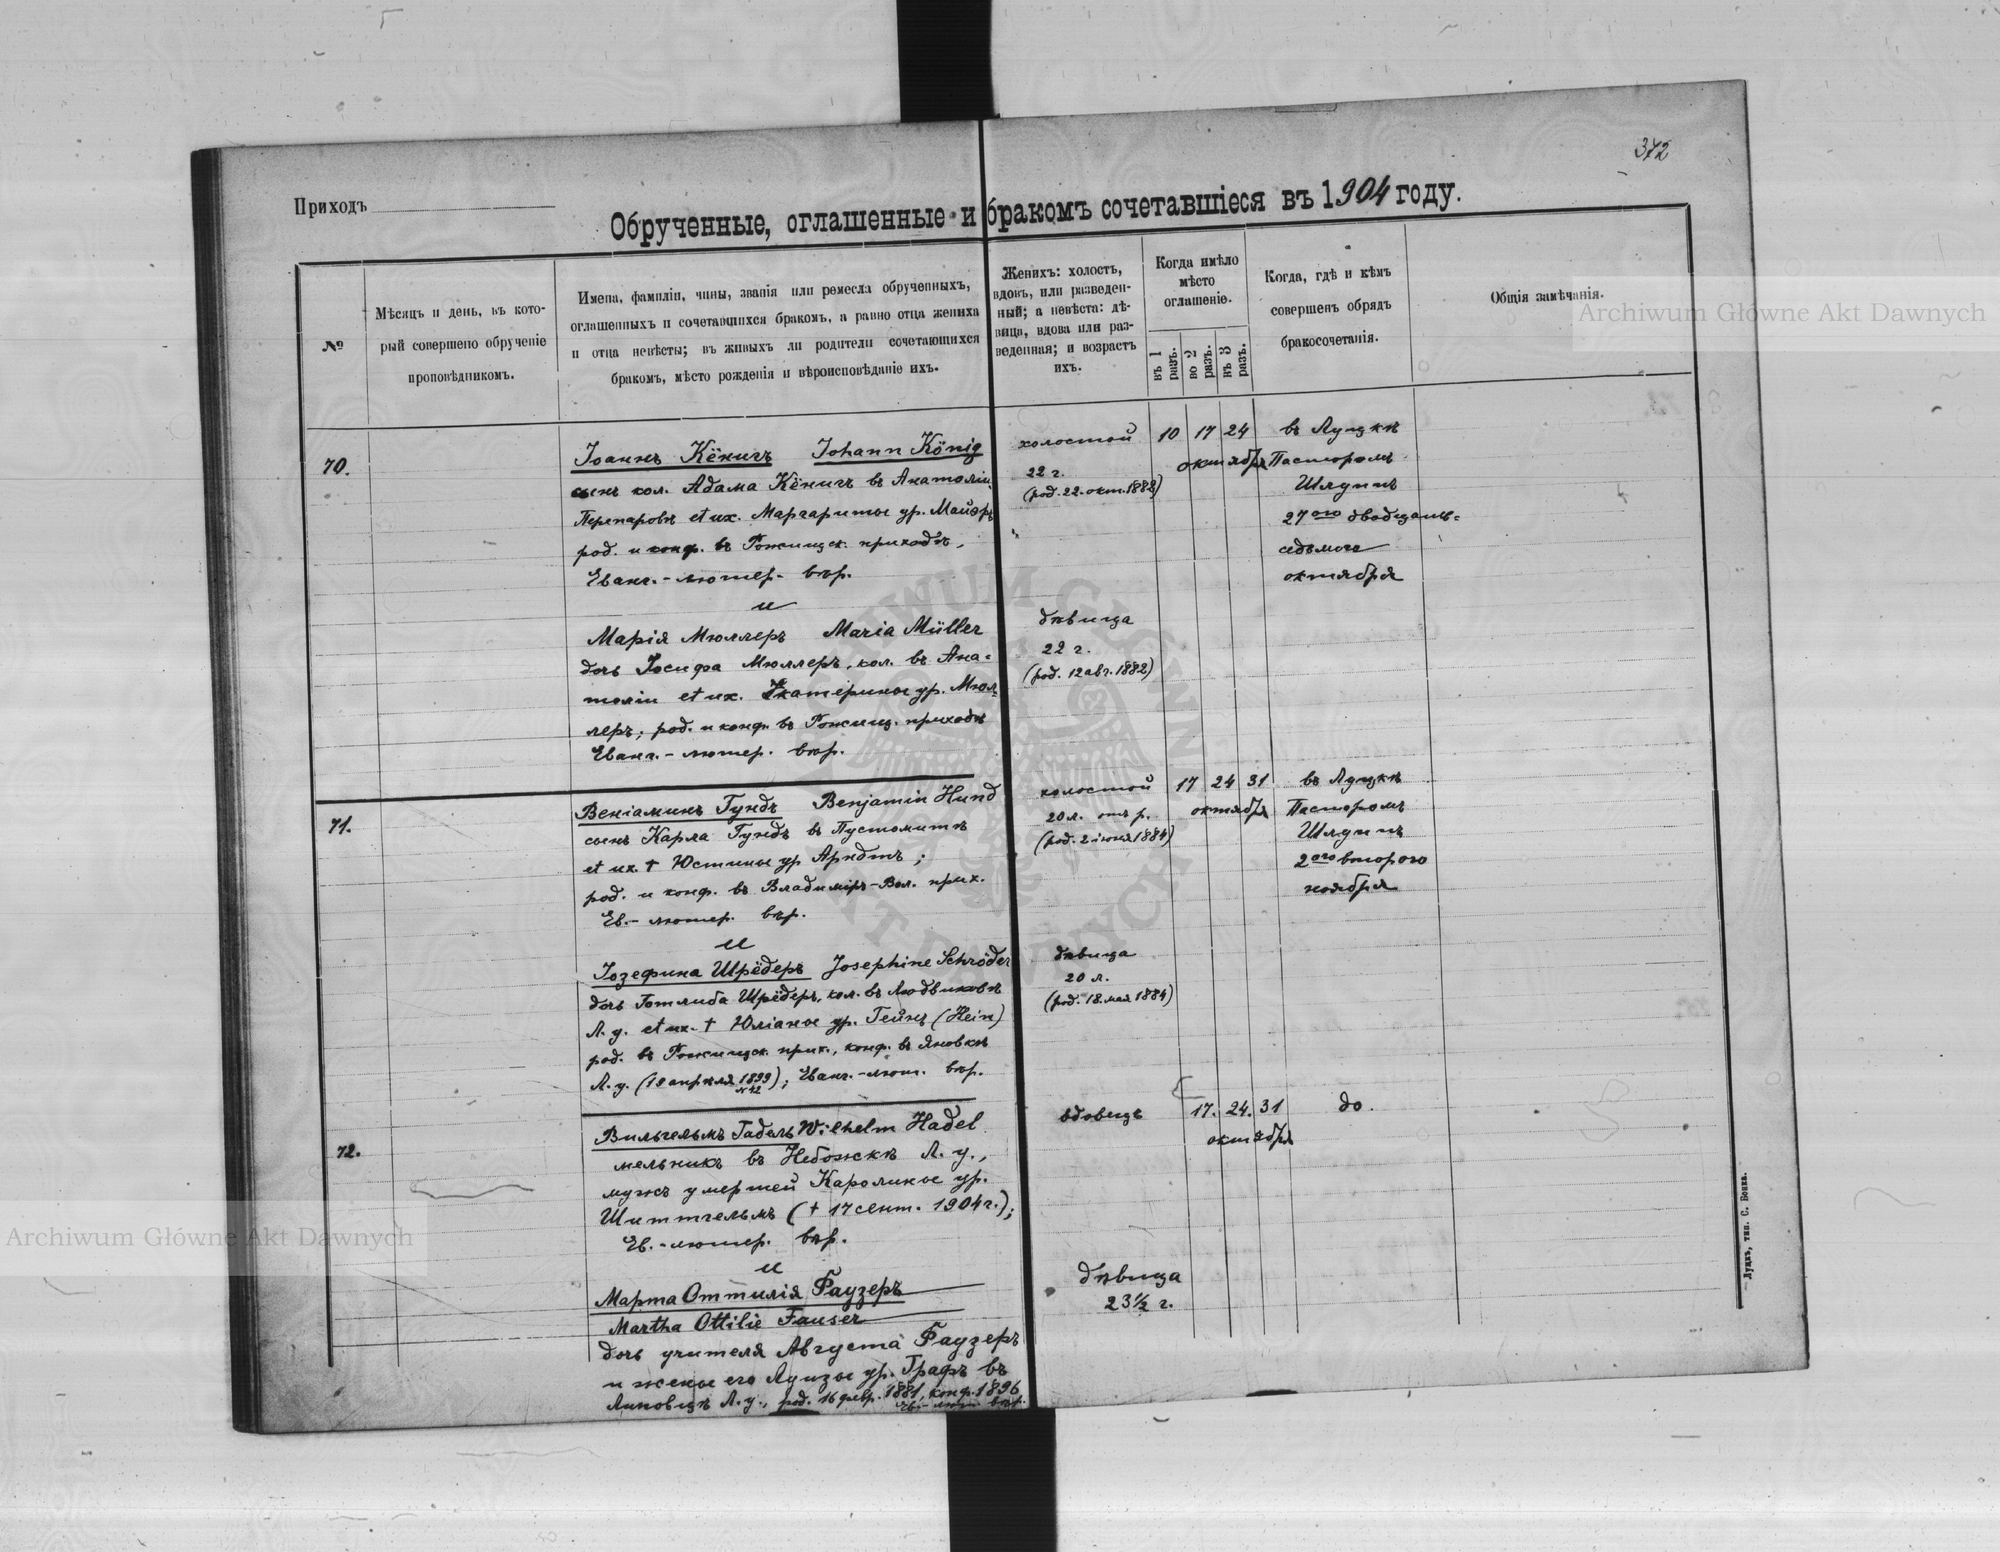 372
Приходъ
Обрученные, оглашенные и бракомъ сочетавшіеся въ 1904 году.
№
Мѣсяцъ и день, въ кото-
рый совершено обрученіе
проповѣдникомъ.
Имена, фамиліи, чины, званія или ремесла обрученныхъ,
оглашенныхъ и сочетавшихся бракомъ, а равно отца жениха
и отца невѣсты; въ живыхъ ли родители сочетающихся
бракомъ, мѣсто рожденія и вѣроисповѣданіе ихъ.
Женихъ: холостъ,
вдовъ, или разведен-
ный; а невѣста: дѣ-
вица, вдова или раз-
веденная; и возрастъ
ихъ.
Когда имѣло
мѣсто
оглашеніе.
въ 1 разъ.
во 2 разъ.
въ 3 разъ.
Когда, гдѣ и кѣмъ
совершенъ обрядъ
бракосочетанія.
Общія замѣчанія.
70.
Іоаннъ Кёнигъ Johann König
сынъ кол. Адама Кёнигъ въ Анатоліи
et ux. Маргариты ур. Майеръ
род. и конф. въ Рожищск. приходѣ,
Еванг.-лютер. вѣр.
и
Марія Мюллеръ Maria Müller
дочь Іосифа Мюллеръ, кол. въ Ана-
толіи et ux. Екатерины ур. Мюл-
леръ; род. и конф. въ Рожищ. приходѣ
Еванг.-лютер. вѣр.
холостой
22 г.
(род. 22. окт. 1882)
дѣвица
22 г.
(род. 12 авг. 1882)
10 17 24
октября
въ Луцкѣ
Пасторомъ
Шлуппъ
27ого двадцать-
седьмого
октября
71.
Веніаминъ Гундъ Benjamin Hund
сынъ Карла Гундъ въ Пустомитѣ
et ux. † Юстины ур Арндтъ;
род. и конф. въ Владиміръ-Вол. прих.
Ев.-лютер. вѣр.
и
Іозефина Шрёдеръ Josephine Schröder
дочь Готлиба Шрёдеръ, кол. въ Людвиковкѣ
Л. у. et ux. † Юліаны ур. Гейнъ (Hein)
род. въ Рожищск. прих., конф. въ Яновкѣ
Л. у. (19 апрѣля 1899 № 42); Еванг.-лют. вѣр.
холостой
20 л. отъ р.
(род. 2 іюня 1884)
дѣвица
20 л.
(род. 18. мая 1884)
17 24 31
октября
въ Луцкѣ
Пасторомъ
Шлуппъ
2ого второго
ноября
72.
Вильгельмъ Гадель Wilhelm Hadel
мельникъ въ Небожкѣ Л. у.,
мужъ умершей Каролины ур.
Шиттгельмъ († 17 сент. 1904 г.);
Ев.-лютер. вѣр.
и
Марта Оттилія Фаузеръ
Martha Ottilie Fauser
дочь учителя Августа Фаузеръ
и жены его Луизы ур. Графъ въ
Липовцѣ Л. у., род. 16 февр. 1881, конф. 1896
Ев.-лют вѣр.
вдовецъ
дѣвица
23½ г.
17. 24. 31
октября
do.
Луцкъ, тип. С. Бонка.
Archiwum Główne Akt Dawnych
Archiwum Główne Akt Dawnych
ARCHIWUM GŁÓWNE AKT DAWNYCH